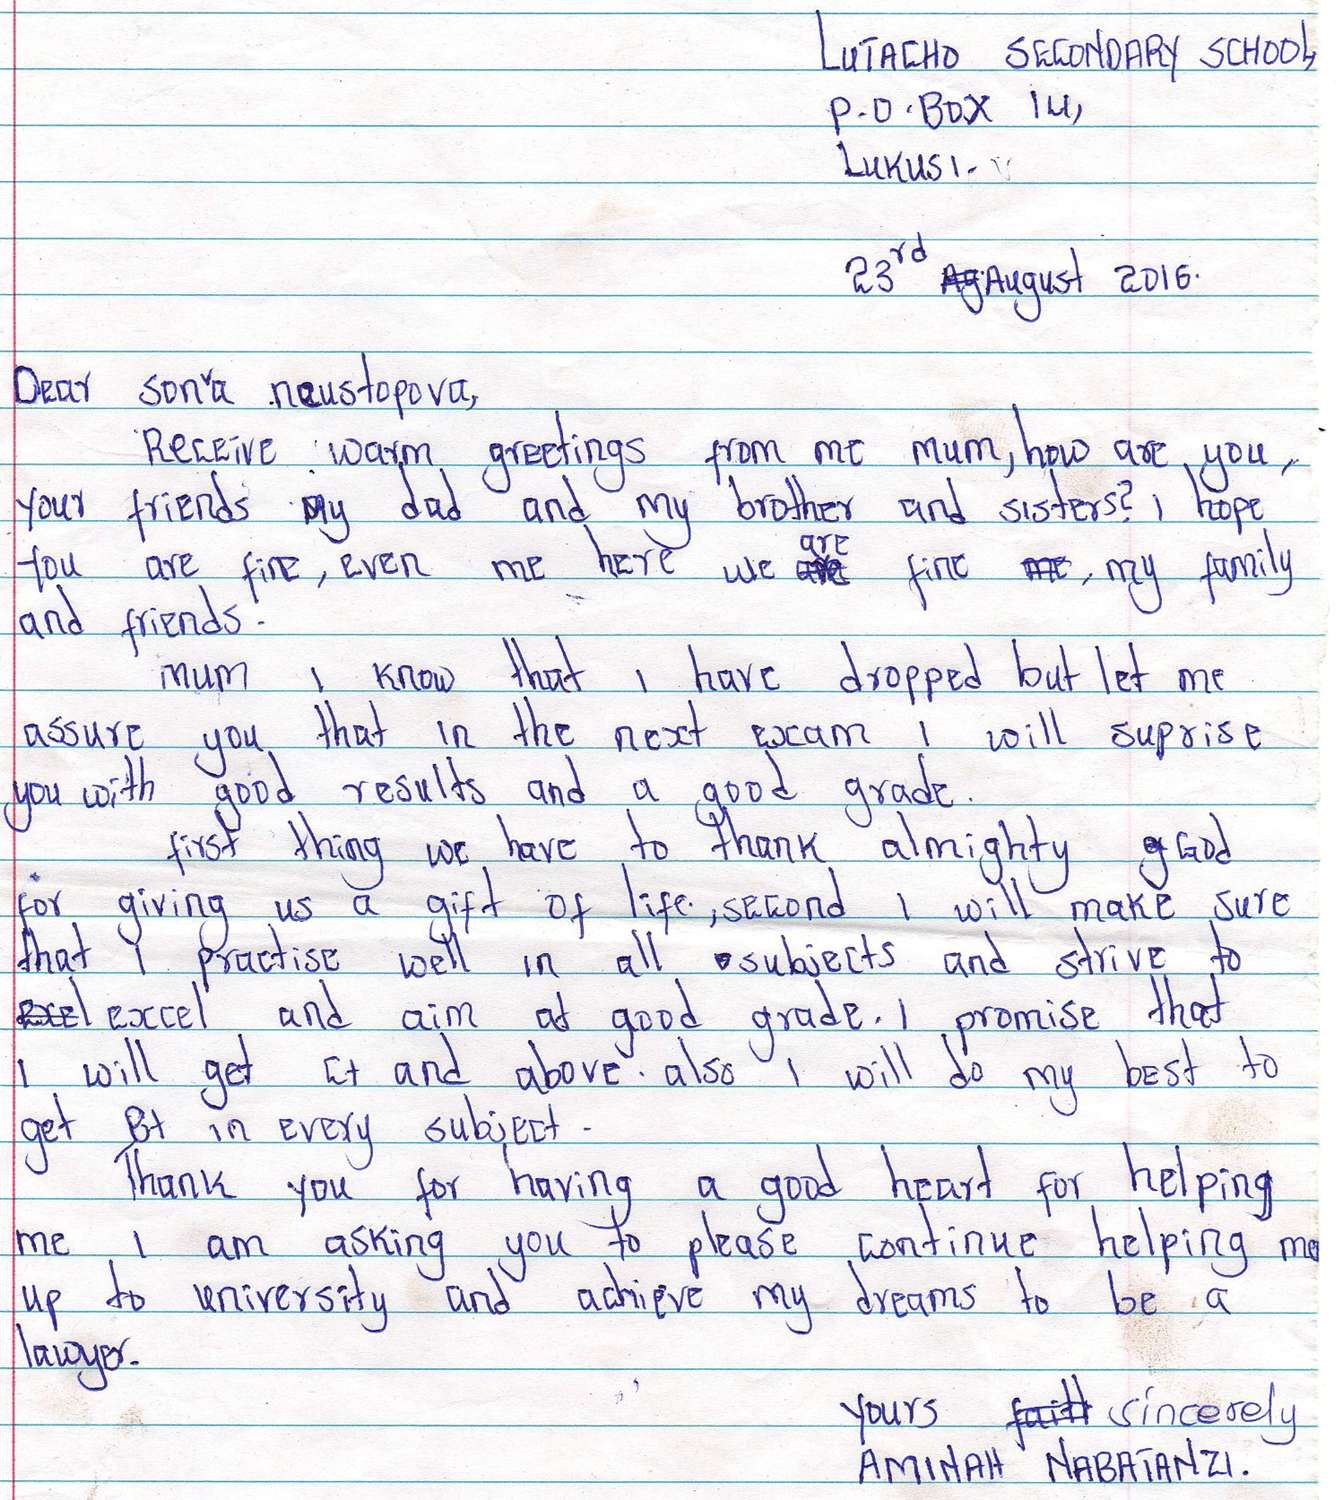 LUTACHO SECONDARY SCHOOL,
P.O.BOX 14,
LUKUSI.
23rd Ag August 2016.
Dear soňa neustopova,
Receive warm greetings from me mum, how are you,
your friends my dad and my brother and sisters? I hope
you are fine, even me here we are fine me, my family
and friends.
mum I know that I have dropped but let me
assure you that in the next exam I will suprise
you with good results and a good grade.
first thing we have to thank almighty g God
for giving us a gift of life, second I will make sure
that I practise well in all subjects and strive to
excel excel and aim at good grade. I promise that
I will get C+ and above. also I will do my best to
get B+ in every subject.
Thank you for having a good heart for helping
me I am asking you to please continue helping me
up to university and achieve my dreams to be a
lawyer.
yours faith sincerely
AMINAH NABATANZI.